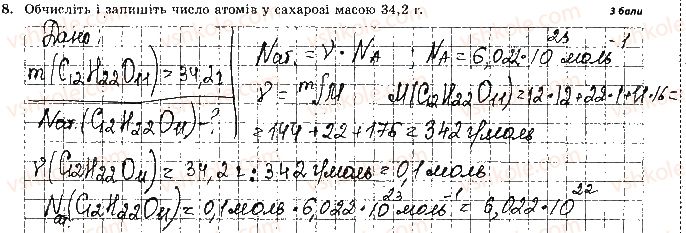 8. Обчисліть і запишіть число атомів у сахарозі масою 34,2 г. 3 бали
Дано:
m(C12H22O11)=34,2г
Nат.(C12H22O11)-?
Nат. = ν · NA NA = 6,022·10²³ моль⁻¹
ν = m/M M(C12H22O11)=12·12+22·1+11·16=
=144+22+176=342 г/моль
ν(C12H22O11)=34,2г:342 г/моль=0,1моль
Nат.(C12H22O11)=0,1моль·6,022·10²³моль⁻¹=6,022·10²²